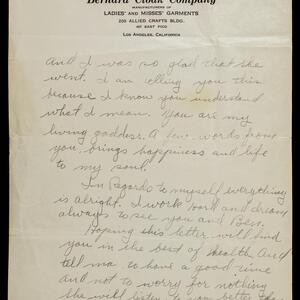 Bernard Cloak Company
MANUFACTURERS OF
LADIES' AND MISSES' GARMENTS
200 ALLIED CRAFTS BLDG.
407 EAST PICO
LOS ANGELES, CALIFORNIA
And I was so glad that she
went. I am telling you this
because I know you understand
what I mean. You are my
living goddess. A few words from
you brings happiness and life
to my soul.
In Regards to myself everything
is alright. I work hard and dream
always to see you and Ben.
Hoping this letter will find
you in the best of health and
tell ma to have a good time
and not to worry for nothing
She will listen to you better than